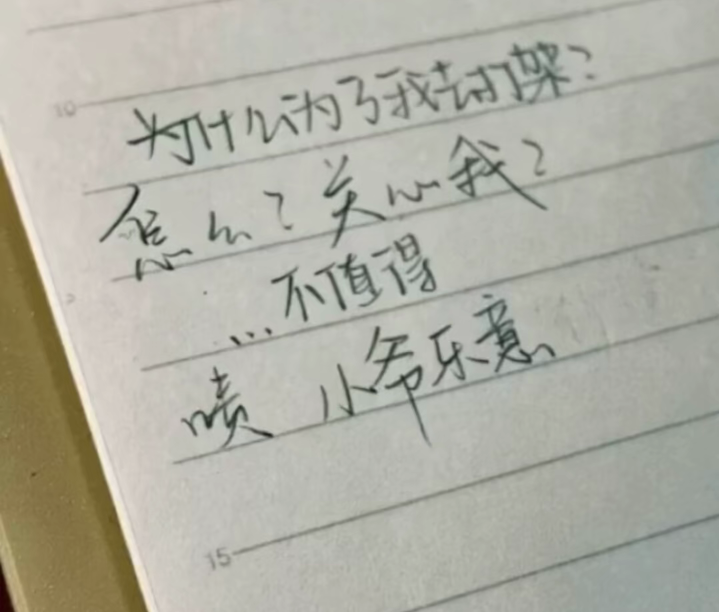 10
为什么为了我去打架?
怎么?关心我?
...不值得
啧 小爷乐意
15